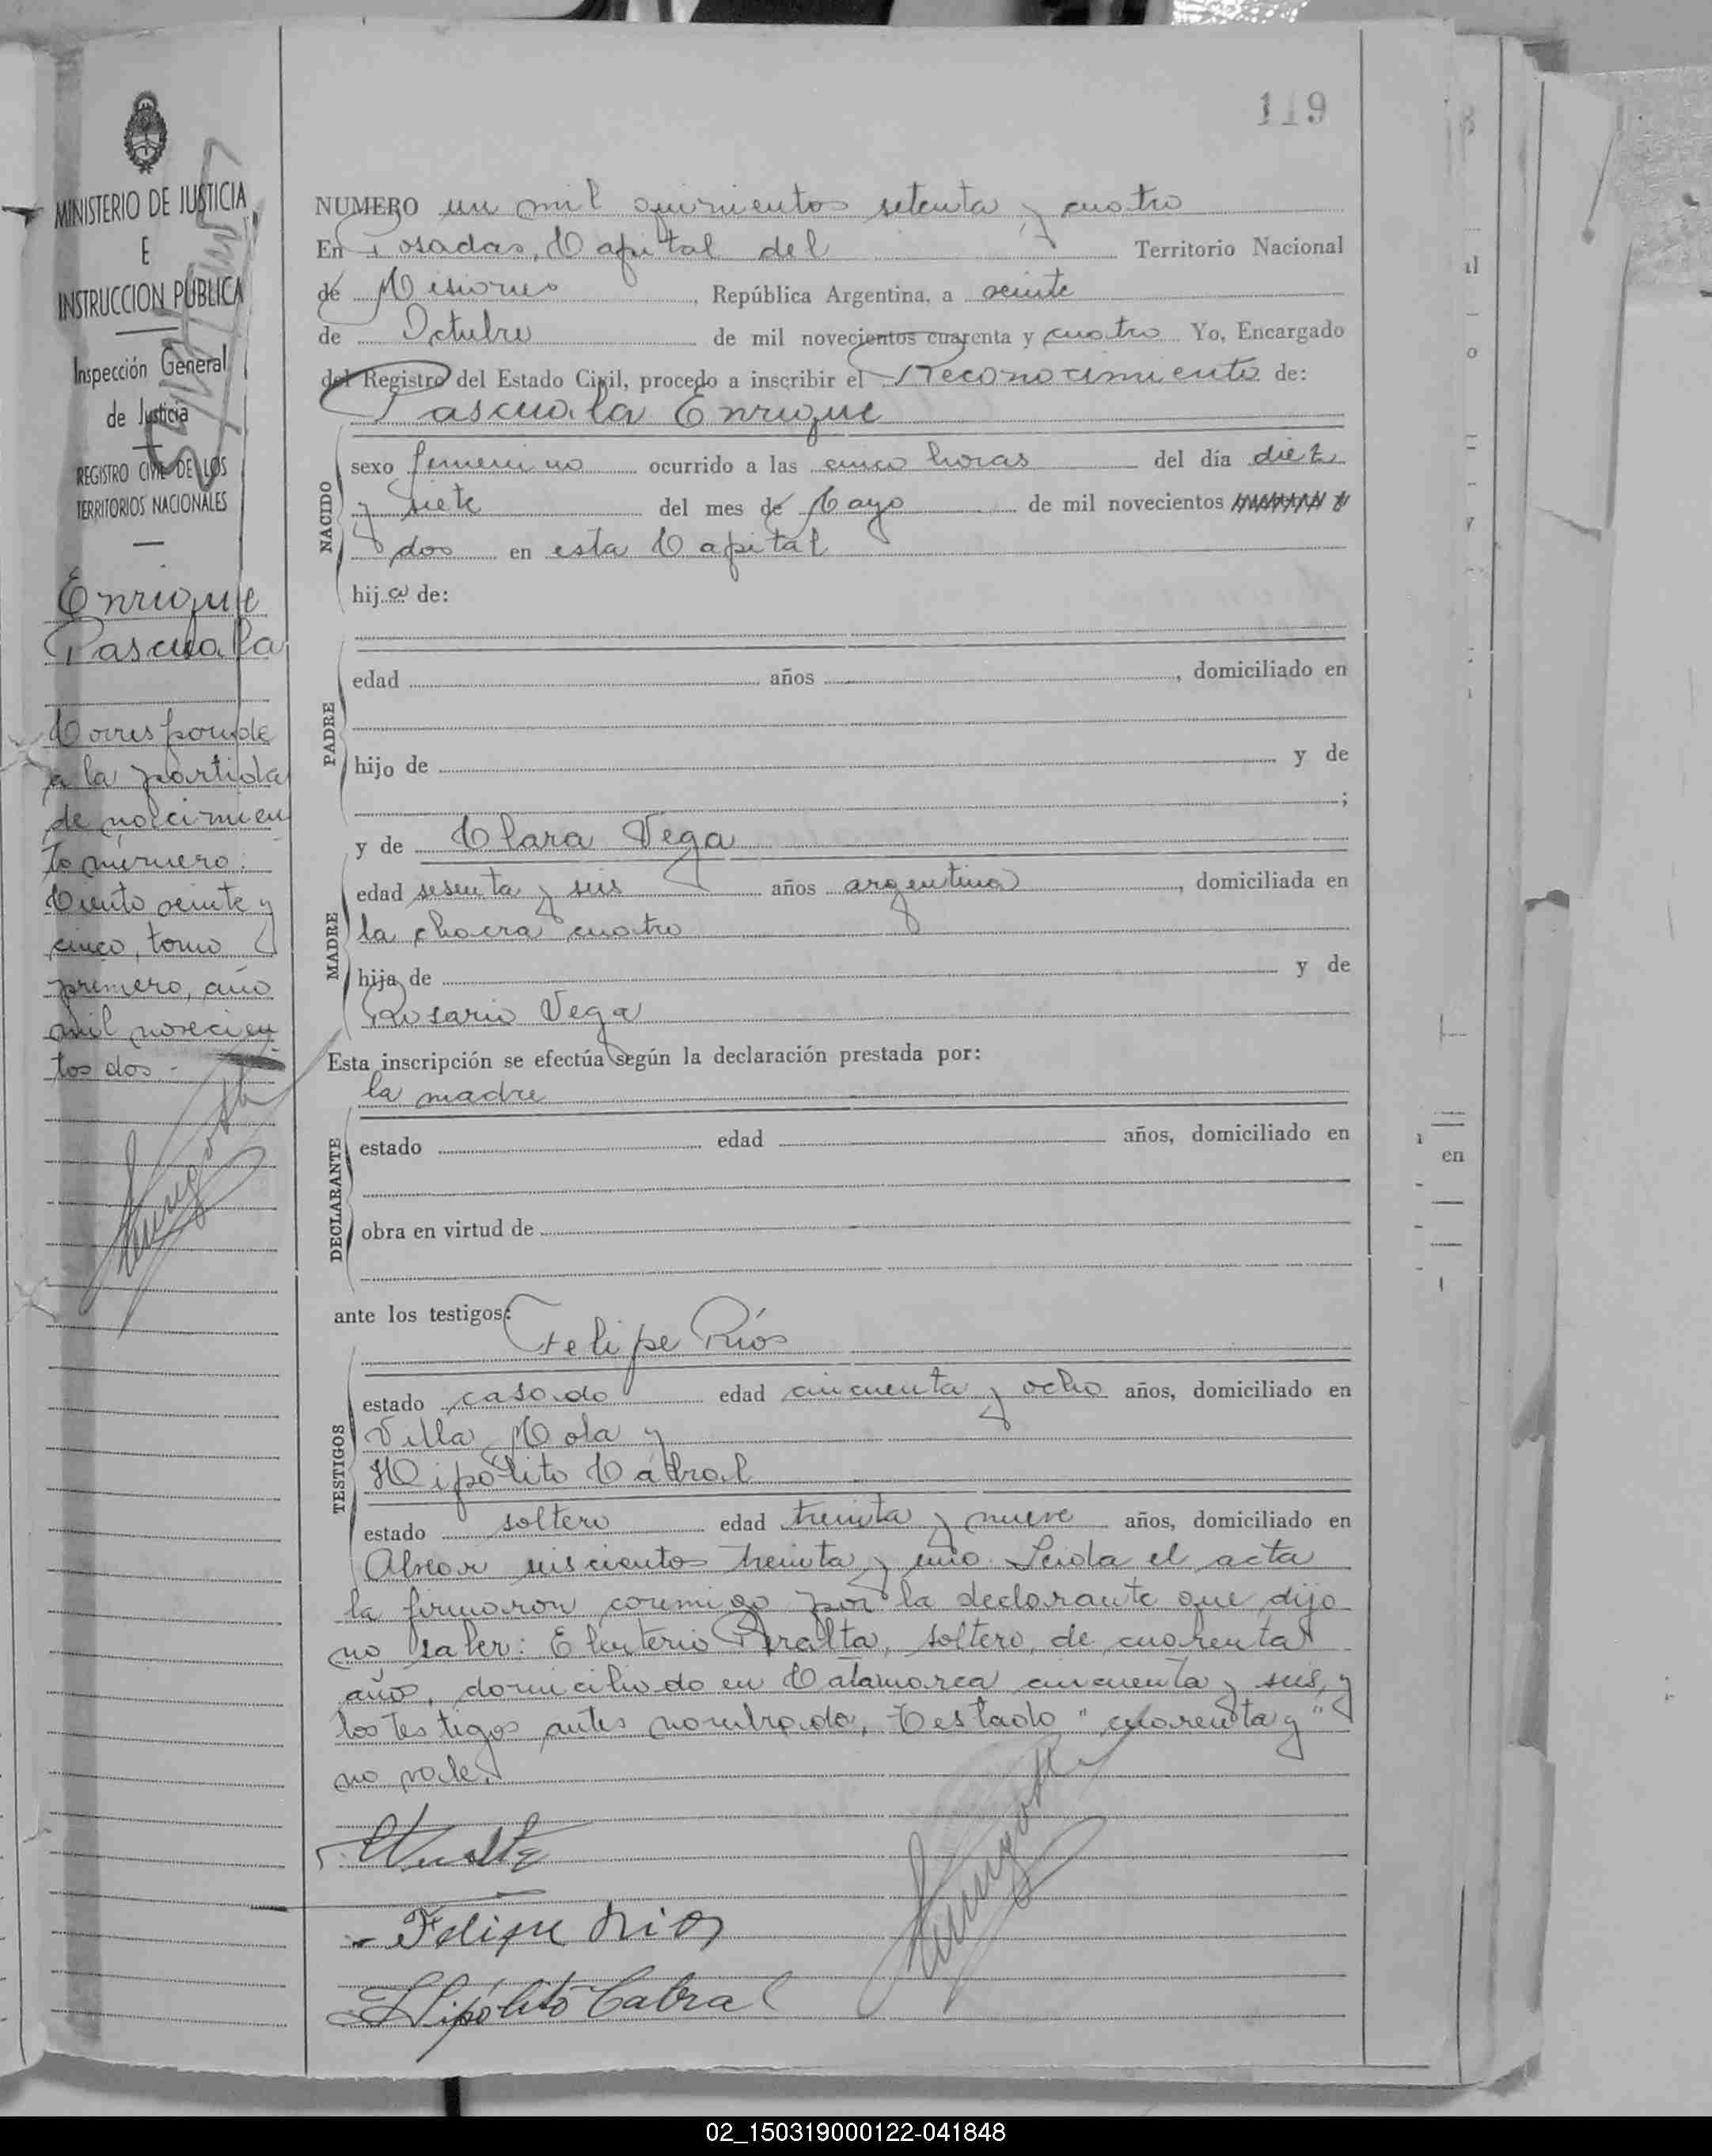 119
MINISTERIO DE JUSTICIA
E
INSTRUCCION PUBLICA
Inspección General
de Justicia
REGISTRO CIVIL DE LOS
TERRITORIOS NACIONALES
Enrique
Pascuala
Corresponde
a la partida
de nacimien
to número:
Ciento veinte y
cinco, tomo
primero, año
mil novecien
tos dos.-
NUMERO un mil quinientos setenta y cuatro
En Posadas, Capital del Territorio Nacional
de Misiones, República Argentina, a veinte
de Octubre de mil novecientos cuarenta y cuatro Yo, Encargado
del Registro del Estado Civil, procedo a inscribir el Reconocimiento de:
Pascuala Enrique
NACIDO
sexo femenino ocurrido a las cinco horas del día diez
y siete del mes de Mayo de mil novecientos
dos en esta Capital
hija de:
PADRE
edad años , domiciliado en
hijo de y de
;
MADRE
y de Clara Vega
edad sesenta y seis años argentina, domiciliada en
la chacra cuatro
hija de y de
Rosario Vega
Esta inscripción se efectúa según la declaración prestada por:
la madre
DECLARANTE
estado edad años, domiciliado en
obra en virtud de
ante los testigos:
Felipe Ríos
TESTIGOS
estado casado edad cincuenta y ocho años, domiciliado en
Villa Mola y
Hipólito Cabral
estado soltero edad treinta y nueve años, domiciliado en
Alvear seiscientos treinta y uno. Leida el acta
la firmaron conmigo por la declarante que dijo
no saber: Eleuterio Peralta, soltero, de cuarenta
años, domiciliado en Catamarca cincuenta y seis, y
los testigos antes nombrado, Testado "cuarenta y"
no vale.
Felipe Rios
Hipólito Cabral
al
o
en
02_150319000122-041848